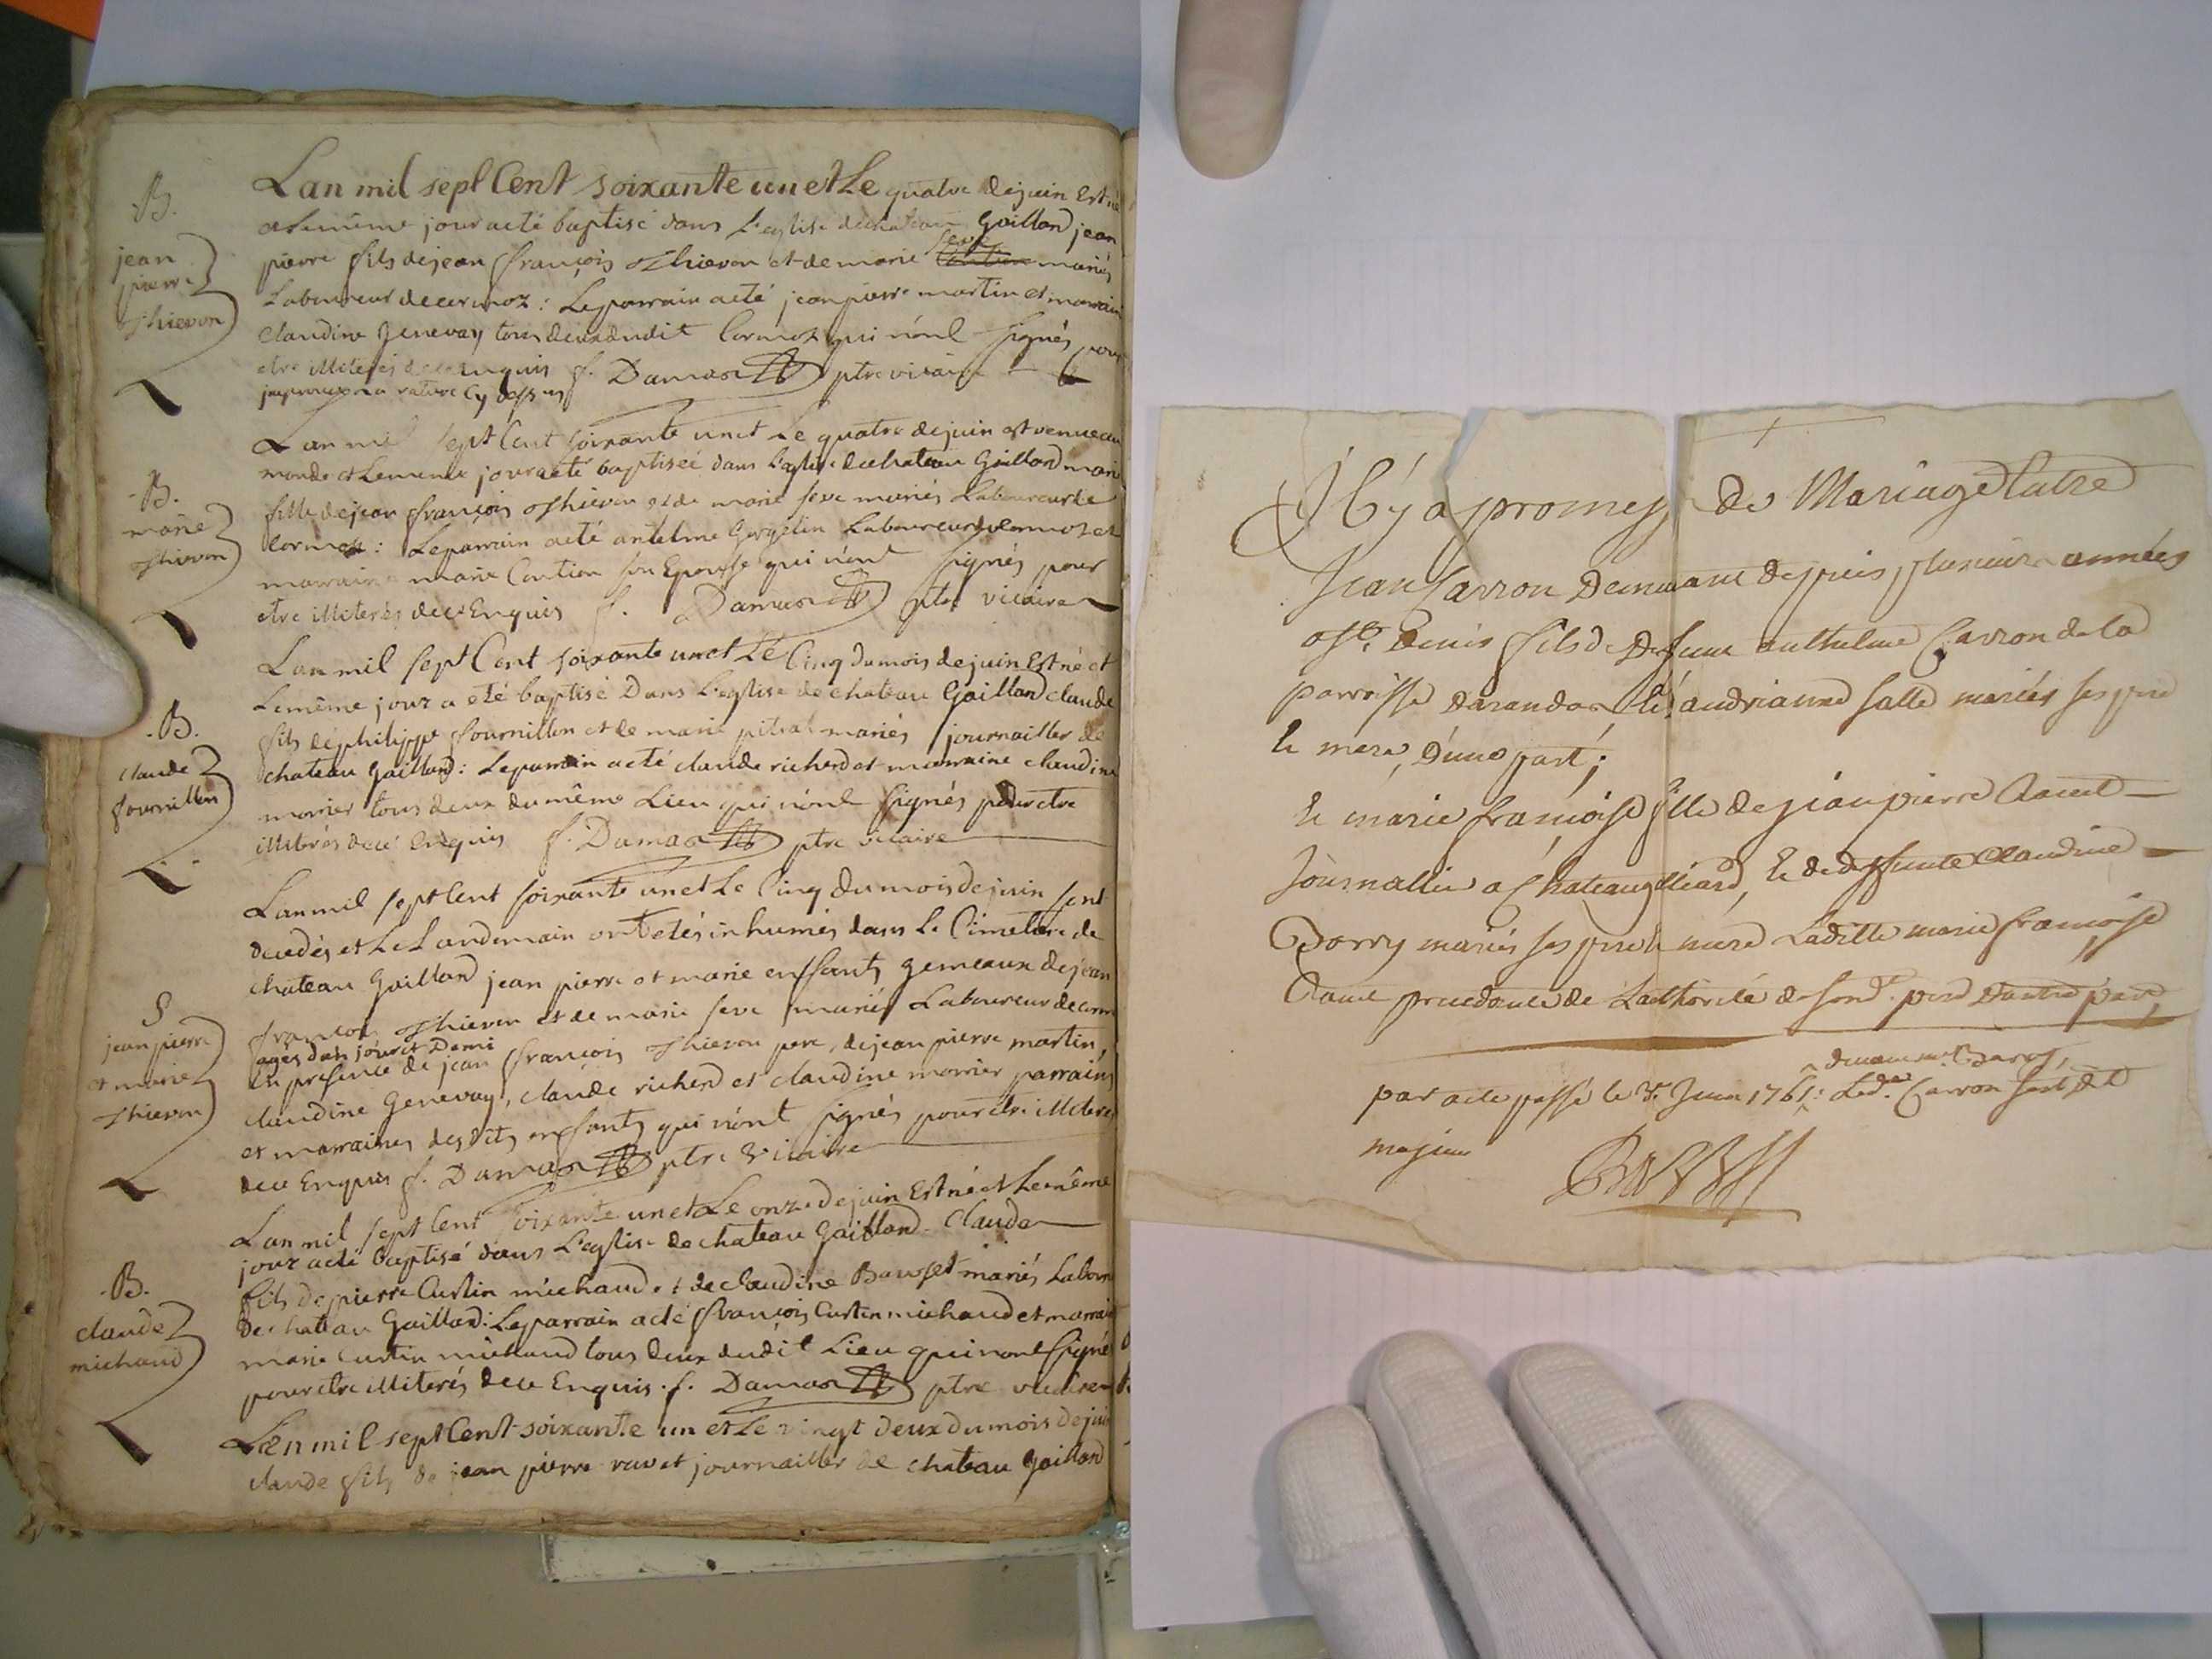 B.
jean
pierre
Thievon
Lan mil sept Cent soixante un et Le quatre de juin Est né
et Le même jour a eté baptisé dans L'eglise de chateau Gaillard jean
pierre fils de jean françois Thievon et de marie seve mariés
Laboureur de cormoz : Le parrain a eté jean pierre martin et marraine
claudine Genevay tous deux dudit Cormoz qui n'ont signés pour
etre illiterés de ce enquis f. Damas ptre vicaire
j'approuve La rature cy dessus
B.
marie
Thievon
Lan mil sept Cent soixante un et Le quatre de juin est venue au
monde et Le meme jour a eté baptiseé dans L'eglise de chateau Gaillard marie
fille de jean françois Thievon et de marie seve mariés Laboureur de
Cormoz : Le parrain a eté antelme Laboureur de cormoz et
marraine marie son Epouse qui n'ont signés pour
etre illiterés de ce Enquis f. Damas ptre vicaire
B.
claude
fournillon
Lan mil sept Cent soixante un et Le Cinq du mois de juin Est né et
Le même jour a eté baptisé Dans L'eglise de chateau Gaillard claude
fils de philippe fournillon et de marie pitrat mariés journallier de
chateau Gaillard : Le parrain a eté claude richerd et marraine claudine
morrier tous deux du même Lieu qui n'ont signés pour etre
illiterés de ce Enquis f. Damas ptre vicaire
S
jean pierre
et marie
Thievon
Lan mil sept Cent soixante un et Le Cinq du mois de juin sont
decedés et Le Landemain ont etés inhumés dans Le Cimetiere de
chateau Gaillard jean pierre et marie enfants gemeaux de jean
françois Thievon et de marie seve mariés Laboureur de corm
agés d'un jour et Demi
En presence de jean françois Thievon pere, de jean pierre martin,
claudine Genevay, claude richerd et claudine morrier parrains
et marraines desdits enfants qui n'ont signés pour etre illiteres
de ce Enquis f. Damas ptre vicaire
B.
claude
michaud
Lan mil sept Cent soixante un et Le onze de juin Est né et Le même
jour a eté baptisé dans L'eglise de chateau Gaillard Claude
fils de pierre Curtin michaud et de claudine mariés Labour
de chateau Gaillard : Le parrain a eté françois Curtin michaud et marraine
marie Curtin michaud tous deux dudit Lieu qui n'ont signé
pour etre illiterés de ce Enquis. f. Damas ptre vicaire
Lan mil sept Cent soixante un et Le vingt deux du mois de juin
claude fils de jean pierre ravet journallier de chateau Gaillard
Il y a promesse De Mariage Entre
Jean Carron Demeurant depuis plusieurs années
a St. Denis fils de Defunt anthelme Carron de la
parroisse Darandas Et andrianne salle mariés ses pere
Et mere, D'une part ;
Et marie françoise fille de jean pierre
Journallier a Chateaugalliard, Et de deffunte Claudine
Dorry mariés ses pere Et mere Laditte marie françoise
procedante de Lauthorité de sond. pere D'autre part,
par acte passé le 3e. Juin 1761 : Led. Carron fort et
majeur